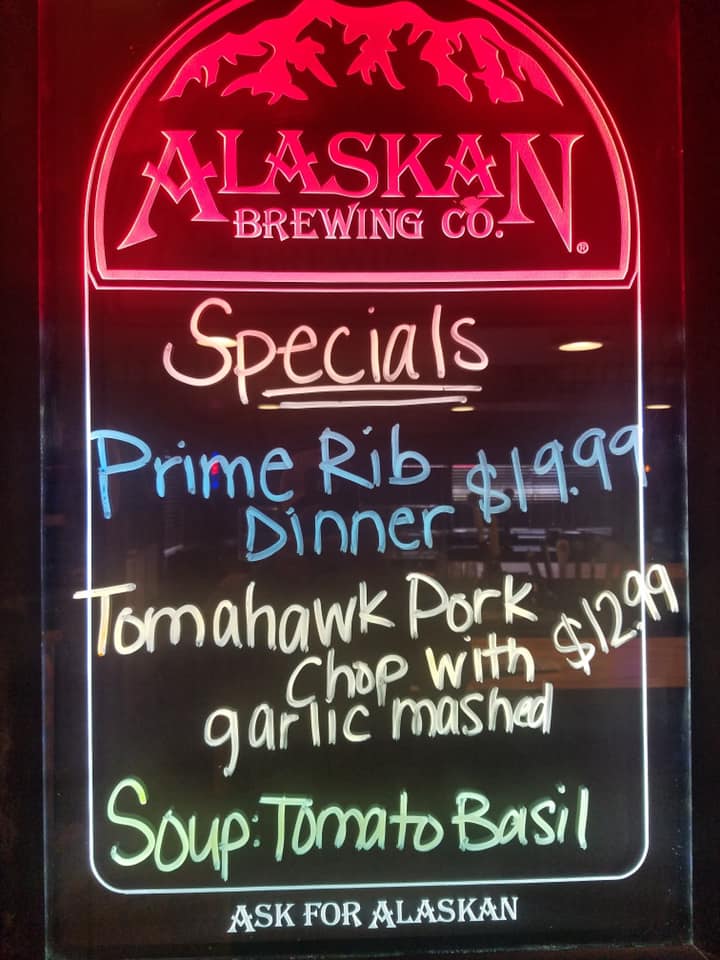 ALASKAN
BREWING CO.®
Specials
Prime Rib $19.99
Dinner
Tomahawk Pork
Chop with $12.99
garlic mashed
Soup: Tomato Basil
ASK FOR ALASKAN